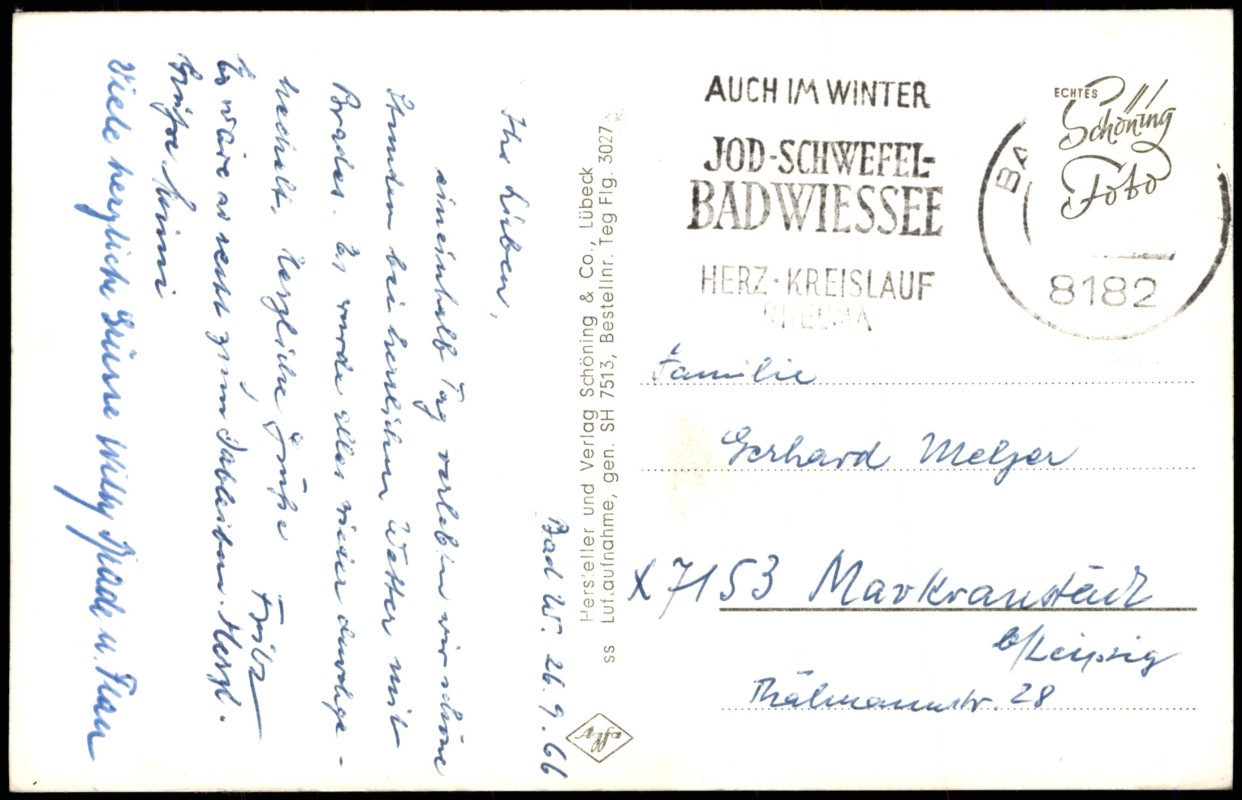 Bad W. 26.9.66
Ihr Lieben,
eineinhalb Tag verleben wir schöne
Stunden bei herrlichem Wetter mit
Brades. Es wurde alles wieder durchge-
hechelt. Herzliche Grüße Fritz
Es wäre so recht zum Dableiben. Herzl.
Grüße Mimi
Viele herzliche Grüsse Willy Brade u. Frau
Hersteller und Verlag Schöning & Co., Lübeck
ss Luftaufnahme, gen. SH 7513, Bestellnr. Teg Flg. 3027
Agfa
AUCH IM WINTER
JOD-SCHWEFEL-
BAD WIESSEE
HERZ-KREISLAUF
RHEUMA
ECHTES
Schöning
Foto
BA
8182
Familie
Gerhard Melzer
X 7153 Markranstädt
b/Leipzig
Thälmannstr. 28